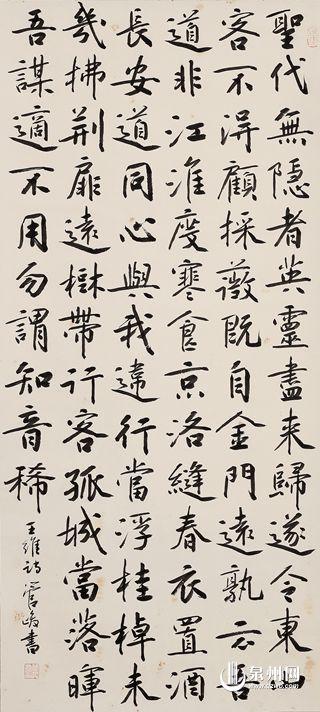 聖代無隱者英靈盡来歸遂令東山
客不得顧採薇既自金門遠孰云吾
道非江淮度寒食京洛縫春衣置酒
長安道同心與我違行當浮桂棹未
幾拂荆扉遠樹帶行客孤城當落暉
吾謀適不用勿謂知音稀
王維詩 管峻書
泉州网